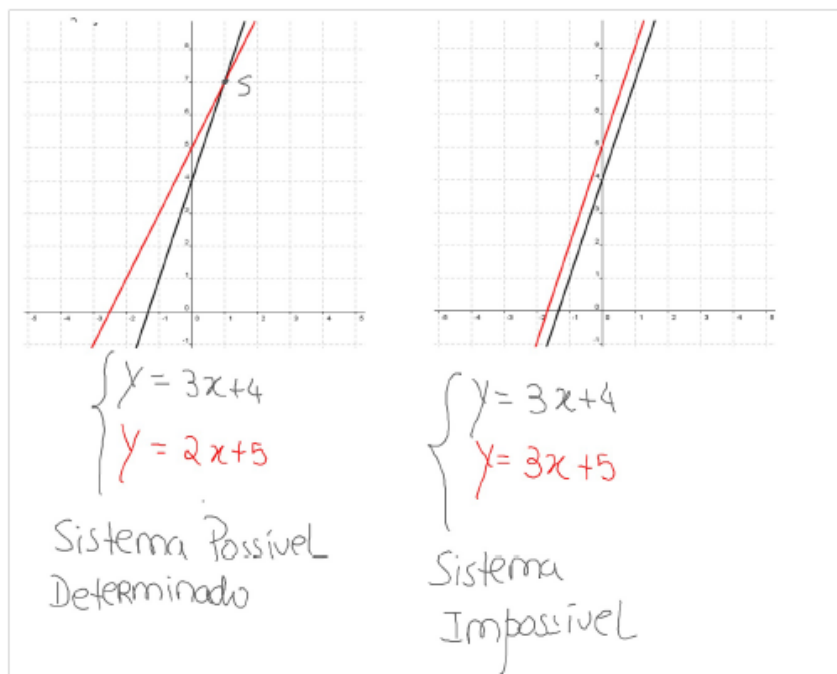 S
y = 3x+4
y = 2x+5
Sistema Possível
Determinado
y = 3x+4
y = 3x+5
Sistema
Impossível